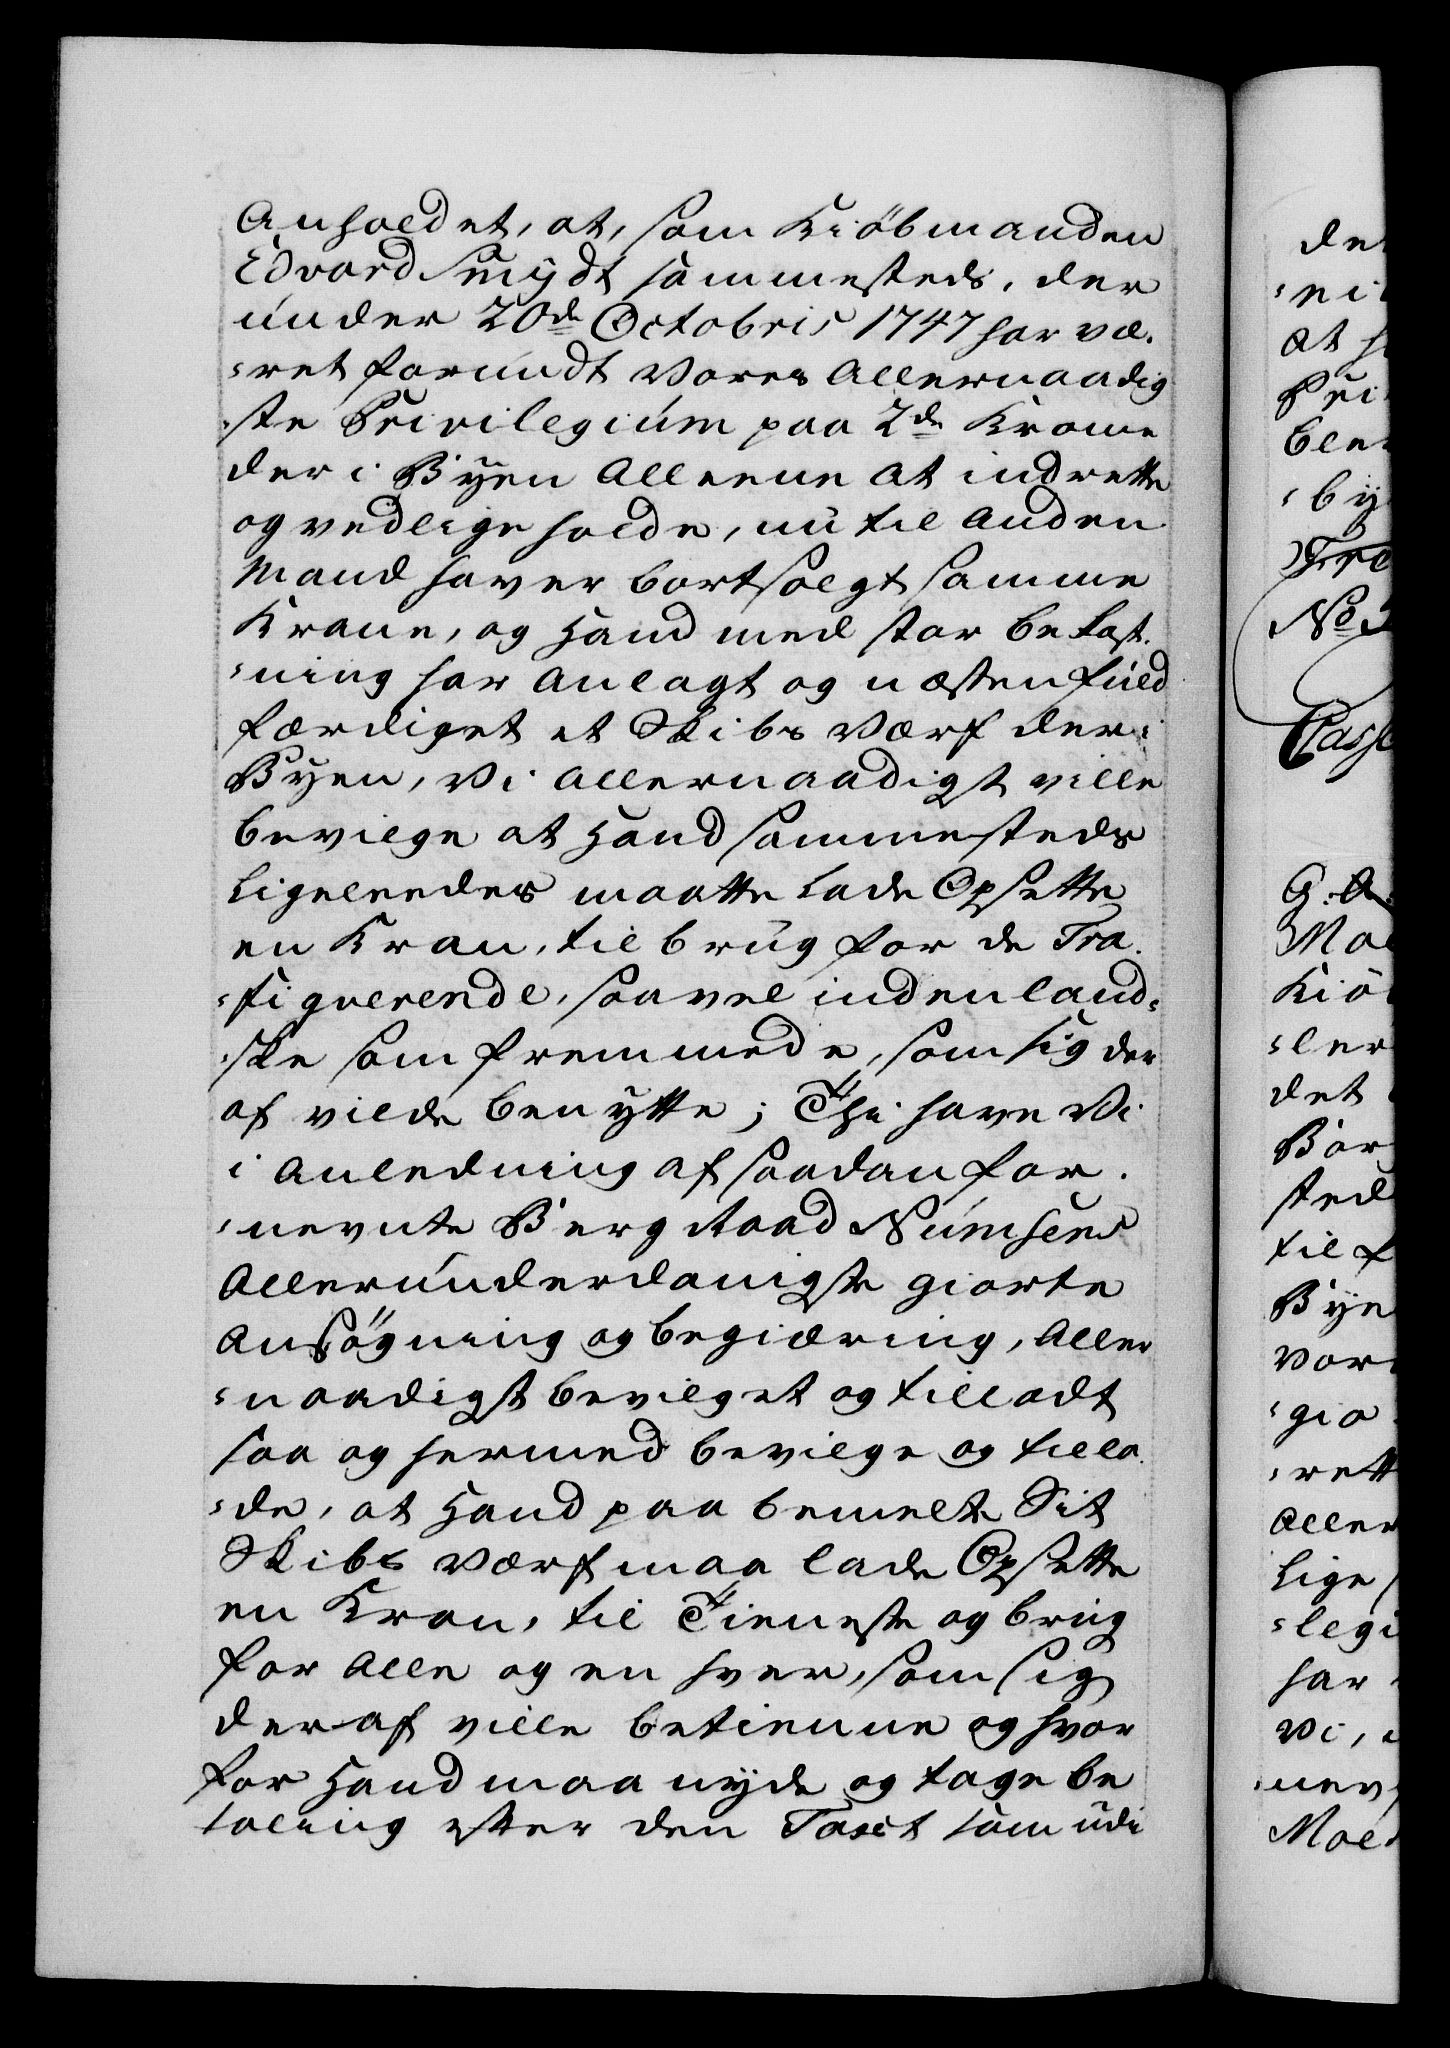 Anholdet, at, som Kiöbmanden
Edvard Smijdt sammesteds, der
under 20de Octobris 1747 har væ-
-ret forundt Vores Allernaadig
-ste Privilegium paa 2de Krane
der i Byen Alleene at indrette
og vedligeholde, nu til Anden
Mand haver bortsolgt samme
Krane, og Hand med stor bekost-
-ning har Anlagt og næsten fuld
færdiget et Skibs Værf der i
Byen, Vi Allernaadigst ville
bevilge at Hand sammesteds
Ligeleedes maatte lade Opsette
en Kran, til brug for de Tra-
-fiqverende, saavel indenland-
-ske som fremmede, som sig der
af vilde benytte; Thi have Vi
i Anledning af saadan for-
-nevnte Berg Raad Numsens
Allerunderdanigste giorte
Ansögning og begiæring, Aller
-naadigst bevilget og tilladt
saa og hermed bevilge og tilla-
-de, at Hand paa bemelte Sit
Skibs Værf maa lade Opsette
en Kran, til Tieneste og brug
for Alle og en hver, som sig
deraf ville betienne og hvor
for Hand maa nyde og tage be
taling efter den Taxt som udi
det
at
Bye
Lige
Vi,